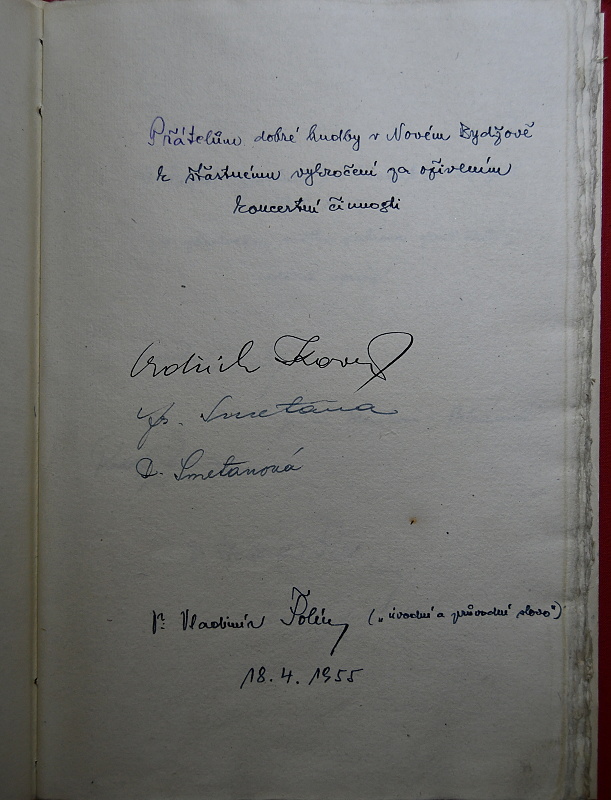 Přátelům dobré hudby v Novém Bydžově
k šťastnému vykročení za oživením
koncertní činnosti
Oldřich Kovář
Smetana
D. Smetanová
Vladimír Šolín („úvodní a průvodní slovo“)
18.4.1955